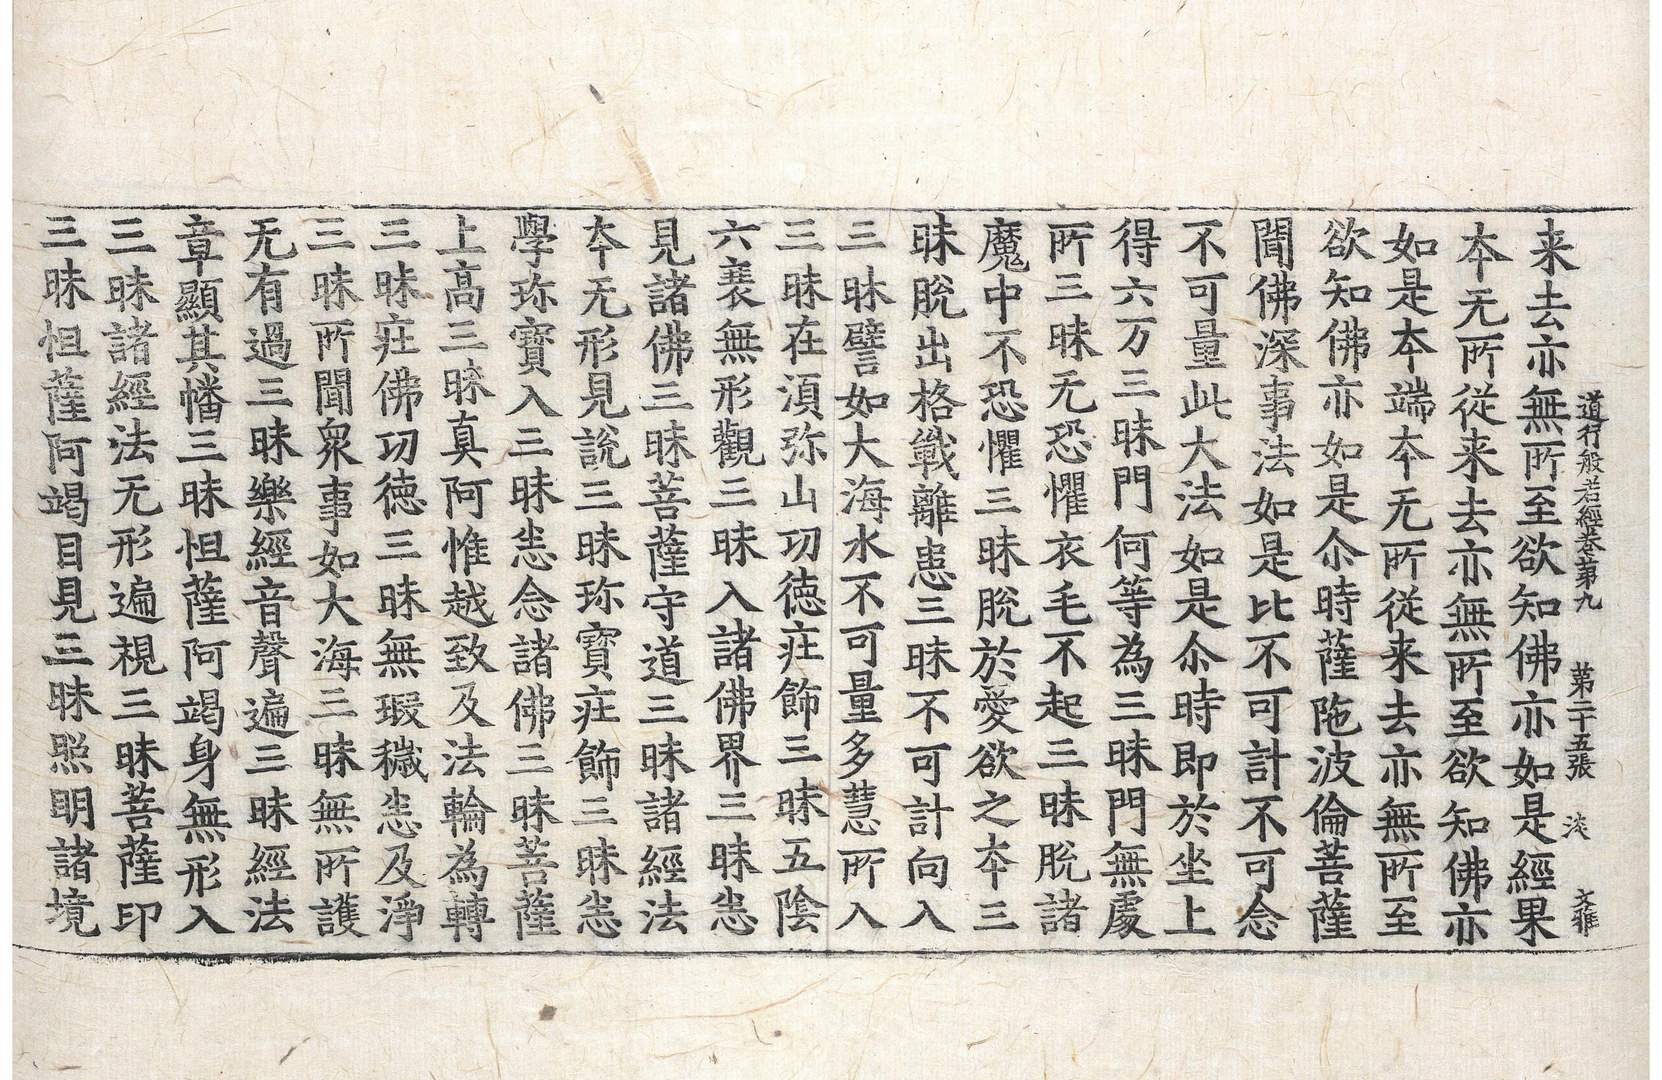 道行般若經卷第九　第二十五張　淡　文雅
来去亦無所至欲知佛亦如是經果
本无所従来去亦無所至欲知佛亦
如是本端本无所従来去亦無所至
欲知佛亦如是尒時薩陁波倫菩薩
聞佛深事法如是比不可計不可念
不可量此大法如是尒時即於坐上
得六万三昧門何等為三昧門無處
所三昧无恐懼衣毛不起三昧脫諸
魔中不恐懼三昧脫於愛欲之本三
昧脫出格戰離患三昧不可計向入
三昧譬如大海水不可量多慧所入
三昧在湏弥山㓛徳疘飾三昧五陰
六衰無形觀三昧入諸佛界三昧悉
見諸佛三昧菩薩守道三昧諸經法
本无形見說三昧珎寶疘飾三昧悉
學珎寶入三昧悉念諸佛三昧菩薩
上髙三昧真阿惟越致及法輪為轉
三昧疘佛㓛徳三昧無瑕穢悉及淨
三昧所聞衆事如大海三昧無所護
无有過三昧樂經音聲遍三昧經法
章顯其幡三昧怛薩阿竭身無形入
三昧諸經法无形遍視三昧菩薩印
三昧怛薩阿竭目見三昧照明諸境